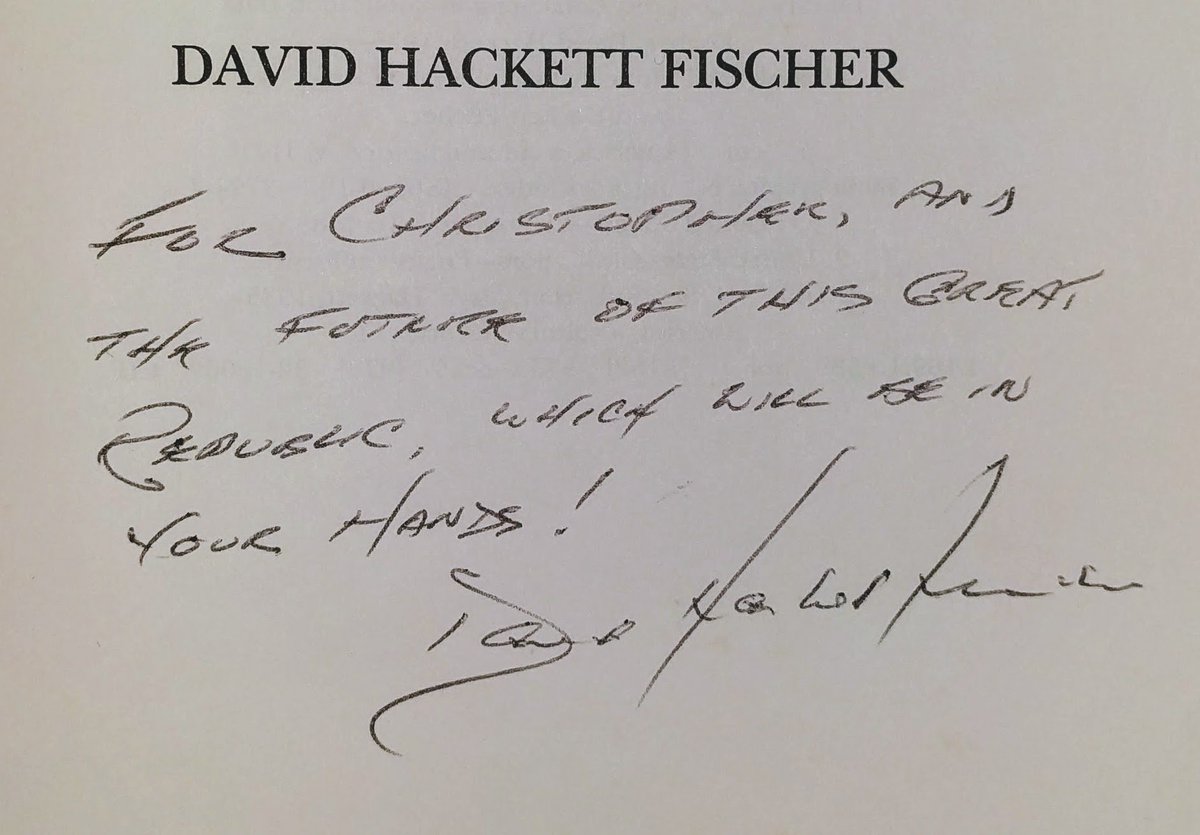 DAVID HACKETT FISCHER
FOR CHRISTOPHER, AND
THE FUTURE OF THIS GREAT
REPUBLIC, WHICH WILL BE IN
YOUR HANDS!
David Hackett Fischer